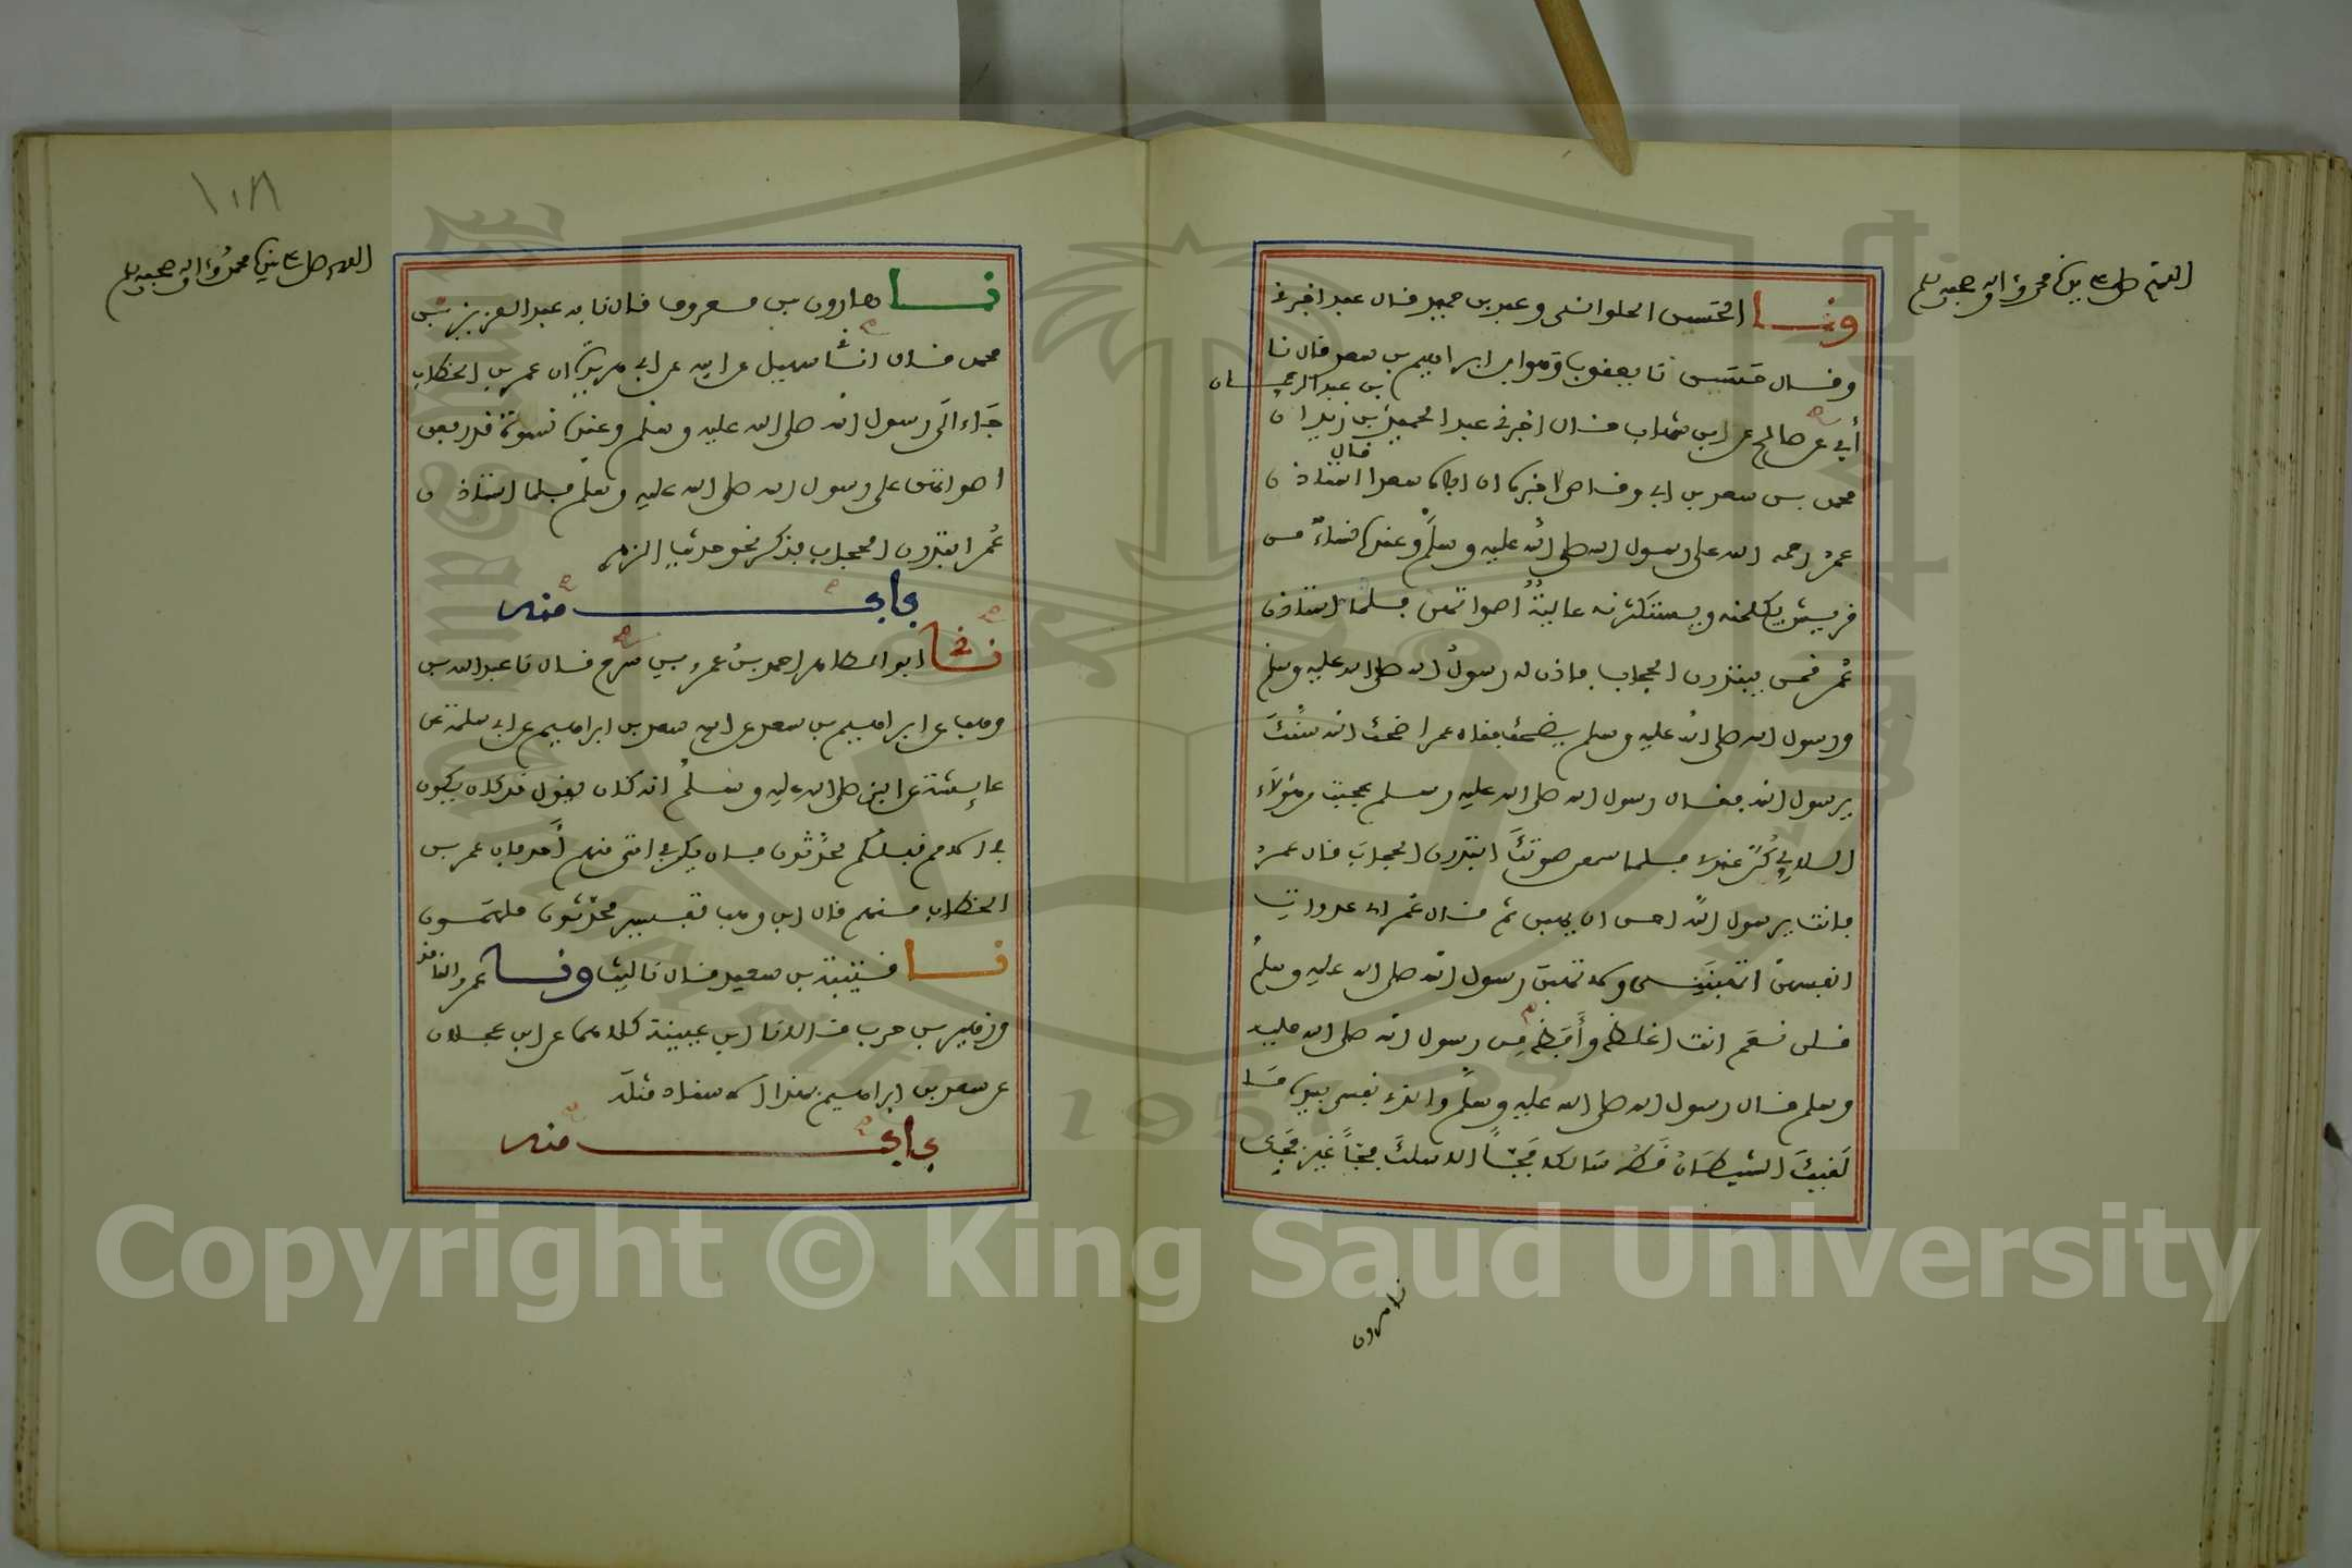 اللهم صل على سيدنا محمد وآله وصحبه وسلم
ونا الحسن الحلواني وعبد بن حميد قال عبد اخبرني
وقال حسن نا يعقوب وهو ابن ابراهيم بن سعد قال نا
أبي عن صالح عن ابن شهاب قال اخبرني عبد الحميد بن عبد الرحمان بن زيد ان
محمد بن سعد بن ابي وقاص اخبره ان اباه سعدا قال استاذن
عمر رحمه الله على رسول الله صلى الله عليه وسلم وعنده نساء من
قريش يكلمنه ويستكثرنه عالية اصواتهن فلما استاذن
عمر قمن يبتدرن الحجاب فاذن له رسول الله صلى الله عليه وسلم
ورسول الله صلى الله عليه وسلم يضحك فقال عمر اضحك الله سنك
يرسول الله فقال رسول الله صلى الله عليه وسلم عجبت من هؤلاء
اللاتي كن عندي فلما سمعن صوتك ابتدرن الحجاب قال عمر
فانت يرسول الله احق ان يهبن ثم قال عمر اي عدوات
انفسهن اتهبنني ولا تهبن رسول الله صلى الله عليه وسلم
قلن نعم انت اغلظ وأفظ من رسول الله صلى الله عليه
وسلم قال رسول الله صلى الله عليه وسلم والذي نفسي بيده ما
لقيك الشيطان قط سالكا فجا الا سلك فجا غير فجك
نا هرون
١٠٨
اللهم صل على سيدنا محمد وآله وصحبه وسلم
نا هارون بن معروف قال نا به عبد العزيز بن
محمد قال انا سهيل عن ابيه عن ابي هريرة ان عمر بن الخطاب
جاء الى رسول الله صلى الله عليه وسلم وعنده نسوة قد رفعن
اصواتهن على رسول الله صلى الله عليه وسلم فلما استاذن
عمر ابتدرن الحجاب فذكر نحو حديث الزهري
باب منه
نا ابو الطاهر احمد بن عمرو بن سرح قال نا عبد الله بن
وهب عن ابراهيم بن سعد عن ابيه سعد بن ابراهيم عن ابي سلمة عن
عايشة عن النبي صلى الله عليه وسلم انه كان يقول قد كان يكون
في الامم قبلكم محدثون فان يكن في امتي منهم أحد فان عمر بن
الخطاب منهم قال ابن وهب تفسير محدثون ملهمون
نا قتيبة بن سعيد قال نا ليث ونا عمرو الناقد
وزهير بن حرب قالا نا ابن عيينة كلاهما عن ابن عجلان
عن سعد بن ابراهيم بهذا الاسناد مثله
باب منه
Copyright © King Saud University
1957